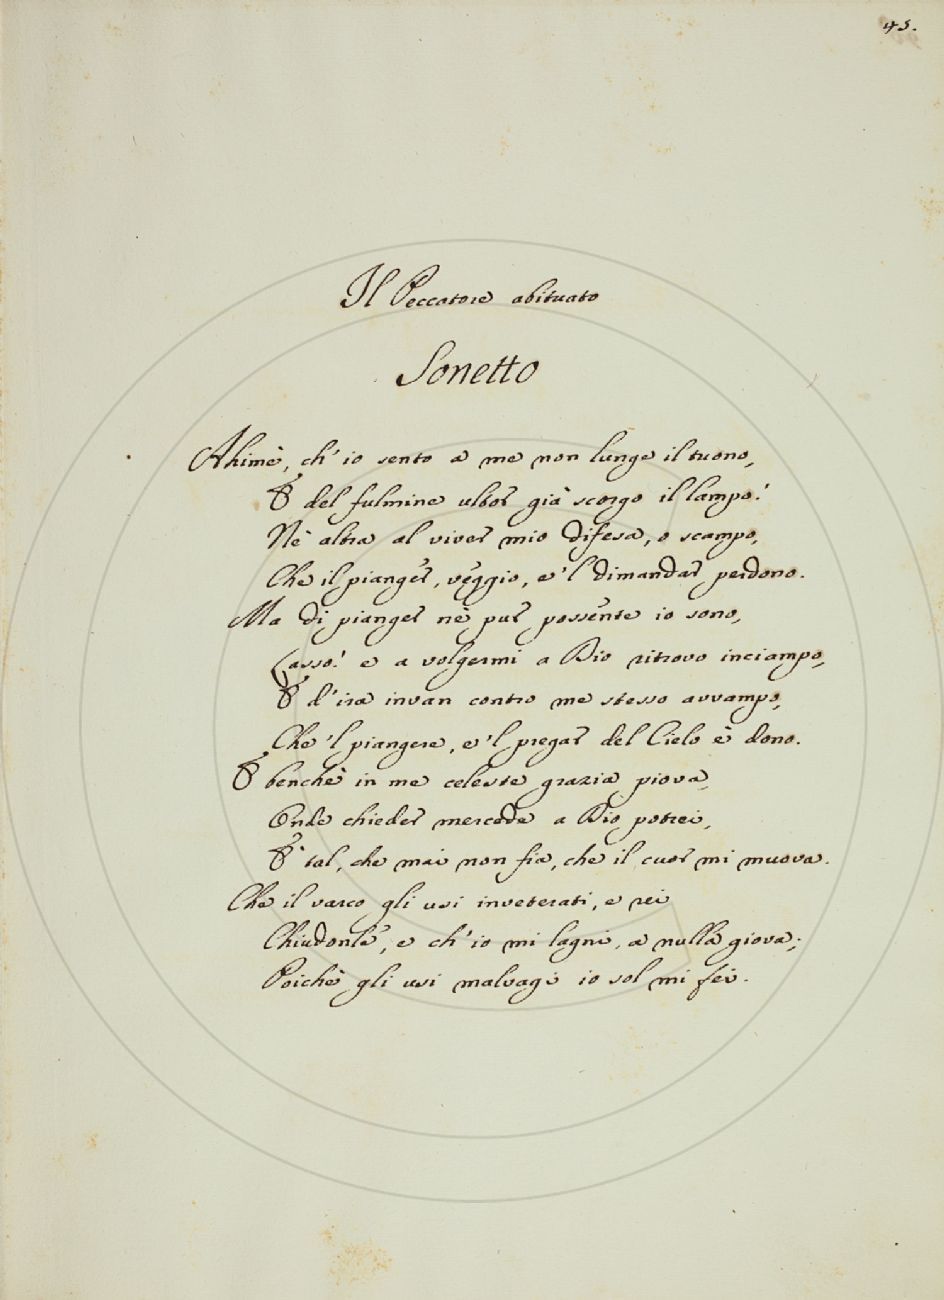 45.
Il Peccatore abituato
Sonetto
Ahimè, ch' io sento a me non lunge il tuono,
E del fulmine ultor già scorgo il lampo!
Nè altra al viver mio difesa, o scampo,
Che il pianger, veggio, e 'l dimandar perdono.
Ma di pianger nè pur possente io sono,
Lasso! e a volgermi a Dio ritrovo inciampo,
E d' ira invan contro me stesso avvampo,
Che 'l piangere, e 'l pregar del Cielo è dono.
E benchè in me celeste grazia piova,
Onde chieder mercede a Dio potrei,
E' tal, che mai non fia, che il cuor mi muova.
Che il varco gli usi inveterati, e rei
Chiudonle, e ch' io mi lagni, a nulla giova;
Poichè gli usi malvagi io sol mi fei.